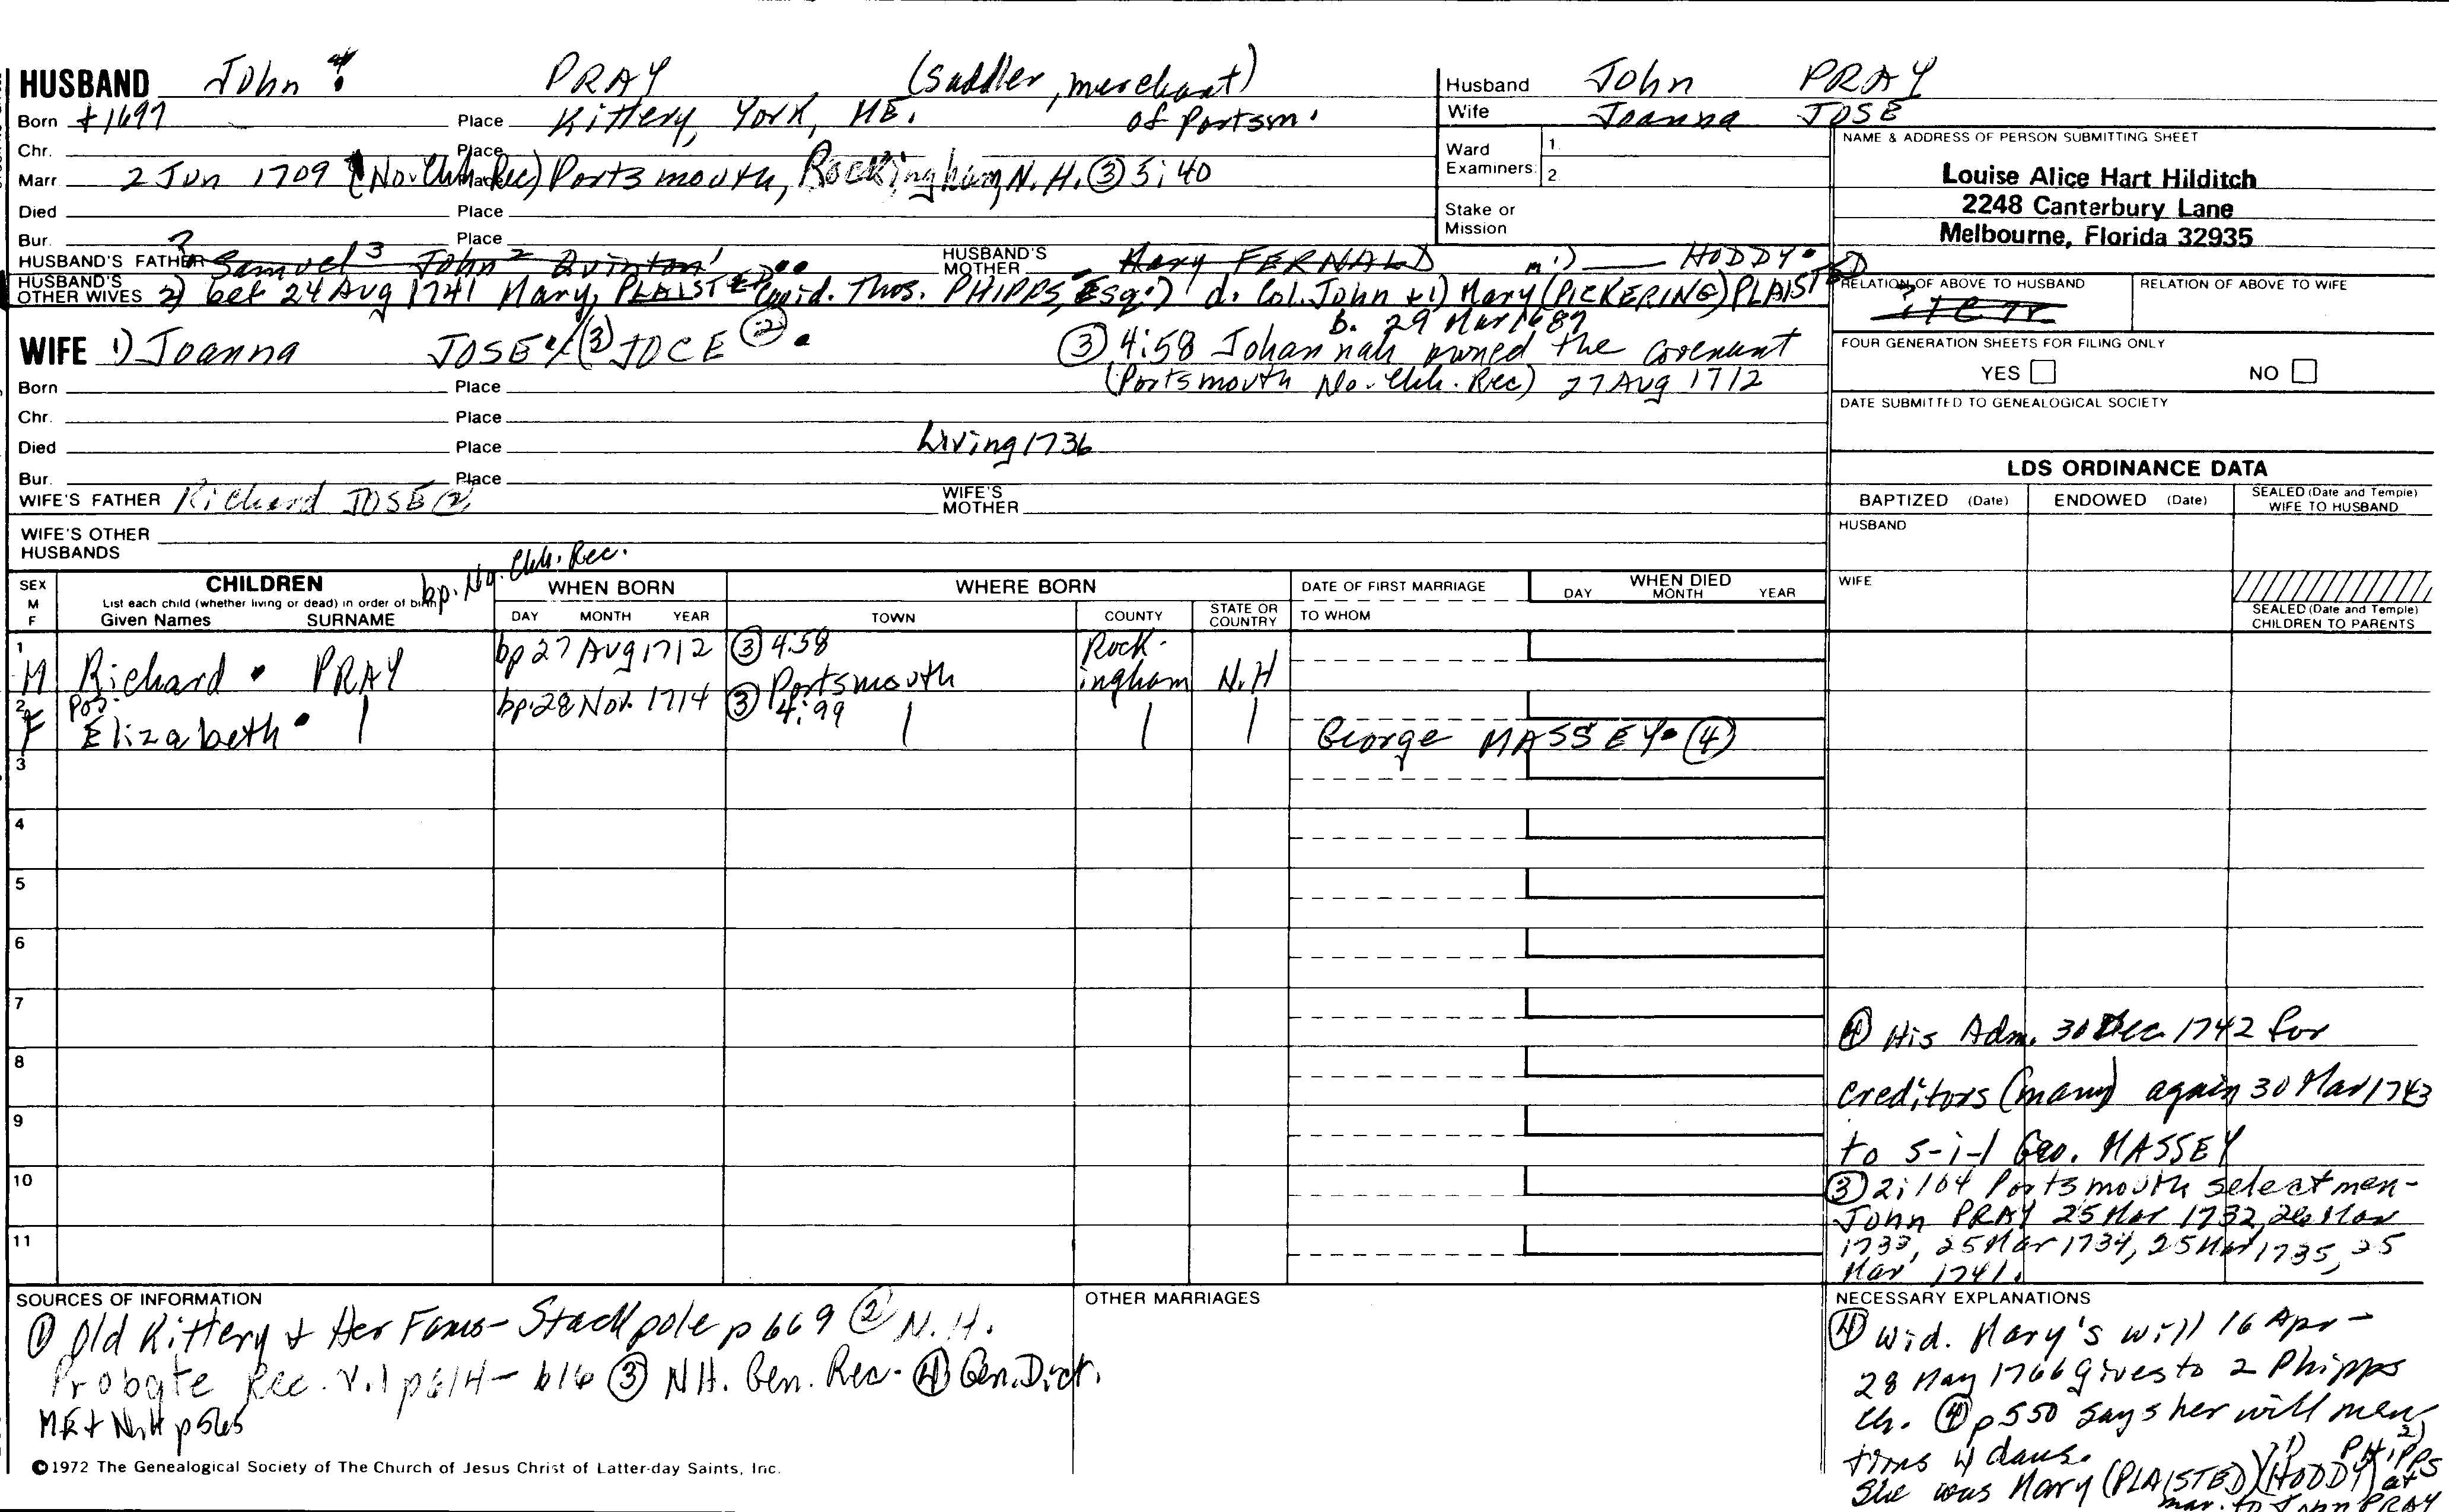 HUSBAND John 4 ? PRAY (saddler, merchant)
Born ± 1697 Place Kittery, York, ME. of Portsm.
Chr. Place
Marr. 2 Jun 1709 (No. Chh. Rec) Place Portsmouth, Rockingham, N.H. ③ 5:40
Died Place
Bur. Place
HUSBAND'S FATHER ? Samuel 3 John 2 Quinton 1 HUSBAND'S MOTHER Mary FERNALD m. 1) HODDY
HUSBAND'S OTHER WIVES 2) bet 24 Aug 1741 Mary, PLAISTED (wid. Thos. PHIPPS, Esq.) d. Col. John + 1) Mary (PICKERING) PLAISTED
b. 29 Mar 1687
WIFE 1) Joanna JOSE ③ JOCE ② ③ 4:58 Johannah owned the covenant
(Portsmouth No. Chh. Rec) 27 Aug 1712
Born Place
Chr. Place
Died Place Living 1736
Bur. Place
WIFE'S FATHER Richard JOSE ② WIFE'S MOTHER
WIFE'S OTHER HUSBANDS
Husband John PRAY
Wife Joanna JOSE
Ward Examiners: 1. 2.
Stake or Mission
NAME & ADDRESS OF PERSON SUBMITTING SHEET
Louise Alice Hart Hilditch
2248 Canterbury Lane
Melbourne, Florida 32935
RELATION OF ABOVE TO HUSBAND RELATION OF ABOVE TO WIFE
?
FOUR GENERATION SHEETS FOR FILING ONLY
YES NO
DATE SUBMITTED TO GENEALOGICAL SOCIETY
LDS ORDINANCE DATA
BAPTIZED (Date) ENDOWED (Date) SEALED (Date and Temple) WIFE TO HUSBAND
HUSBAND
WIFE
SEALED (Date and Temple) CHILDREN TO PARENTS
SEX M F
CHILDREN
List each child (whether living or dead) in order of birth
Given Names SURNAME
bp. No. Chh. Rec.
WHEN BORN
DAY MONTH YEAR
WHERE BORN
TOWN COUNTY STATE OR COUNTRY
DATE OF FIRST MARRIAGE
TO WHOM
WHEN DIED
DAY MONTH YEAR
1 M Richard PRAY bp 27 Aug 1712 ③ 4:58 Portsmouth Rockingham N.H
2 F pos. Elizabeth bp 28 Nov. 1714 ③ 4:99 George MASSEY ④
3
4
5
6
7
8
9
10
11
④ His Adm. 30 Dec 1742 for
creditors (many) again 30 Mar 1743
to s-i-l Geo. MASSEY
③ 2:164 Portsmouth selectmen-
John PRAY 25 Mar 1732, 26 Mar
1733, 25 Mar 1734, 25 Mar 1735, 25
Mar 1741.
SOURCES OF INFORMATION
① Old Kittery + Her Fams - Stackpole p 669 ② N.H.
Probate Rec. v.1 p 614-616 ③ NH. Gen. Rec. ④ Gen. Dict.
ME + N.H p 565
OTHER MARRIAGES
NECESSARY EXPLANATIONS
④ Wid. Mary's will 16 Apr -
28 May 1766 gives to 2 Phipps
ch. ④ p 550 says her will men
tions 4 daus.
She was Mary (PLAISTED) 1) (HODDY) 2) PHIPPS at
mar. to John PRAY
©1972 The Genealogical Society of The Church of Jesus Christ of Latter-day Saints, Inc.